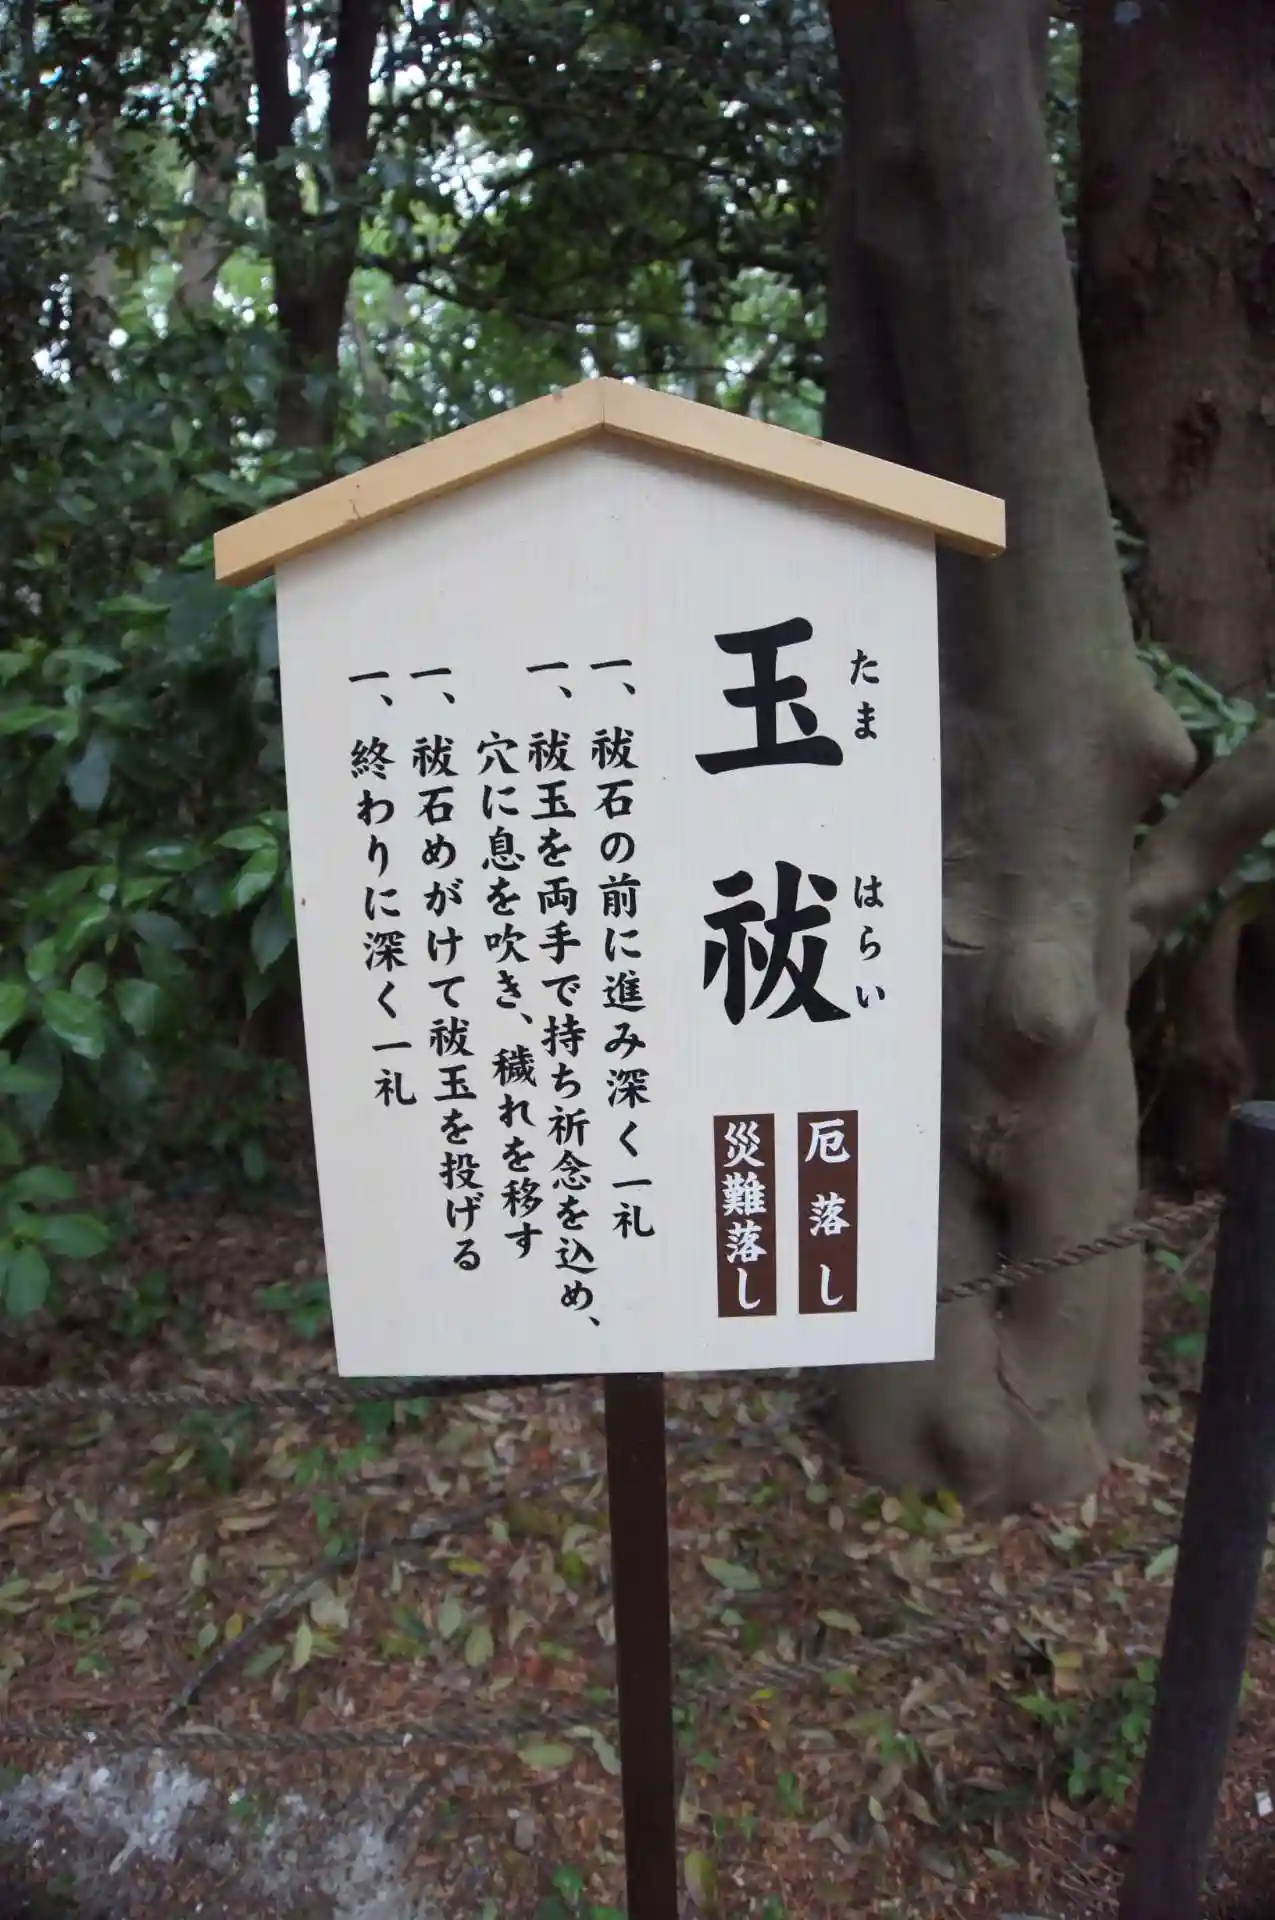 玉祓
たま はらい
厄落し
災難落し
一、祓石の前に進み深く一礼
一、祓玉を両手で持ち祈念を込め、
穴に息を吹き、穢れを移す
一、祓石めがけて祓玉を投げる
一、終わりに深く一礼